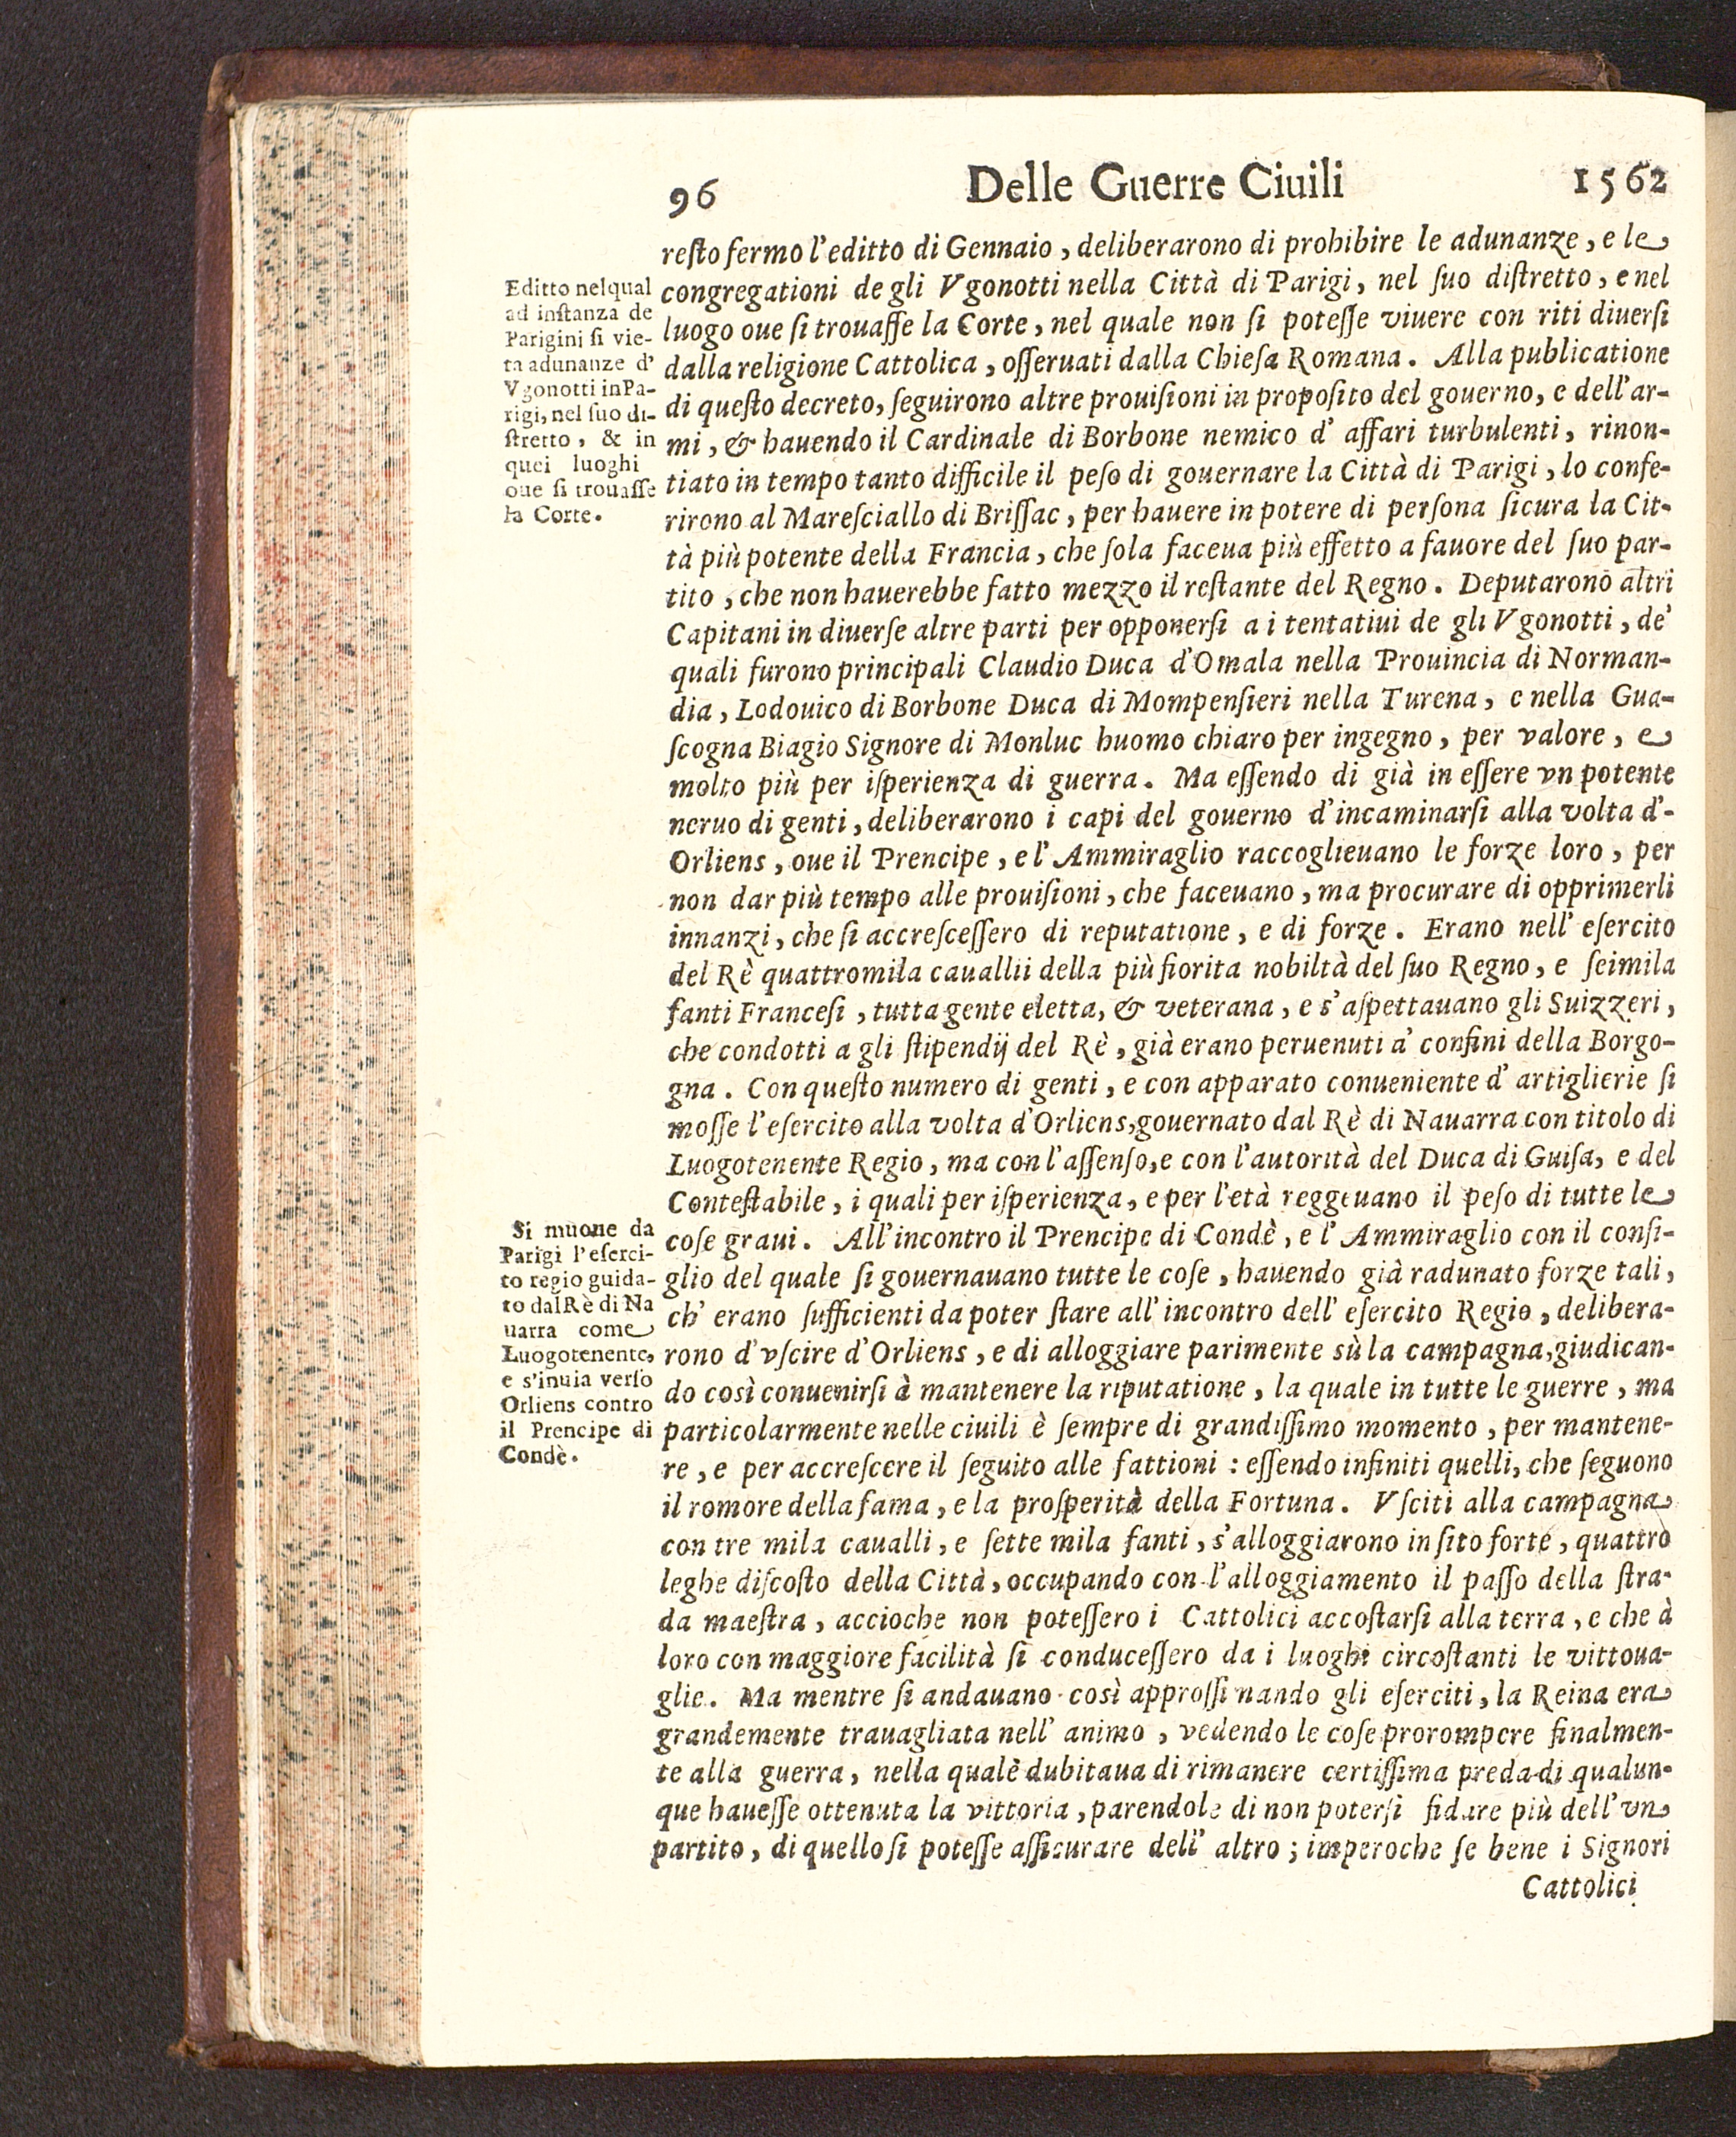 96 Delle Guerre Ciuili 1562
reſto fermo l'editto di Gennaio, deliberarono di prohibire le adunanze, e le
congregationi de gli Vgonotti nella Città di Parigi, nel ſuo diſtretto, e nel
luogo oue ſi trouaſſe la Corte, nel quale non ſi poteſſe viuere con riti diuerſi
dalla religione Cattolica, oſſeruati dalla Chieſa Romana. Alla publicatione
di queſto decreto, ſeguirono altre prouiſioni in propoſito del gouerno, e dell'ar-
mi, & hauendo il Cardinale di Borbone nemico d' affari turbulenti, rinon-
tiato in tempo tanto difficile il peſo di gouernare la Città di Parigi, lo confe-
rirono al Mareſciallo di Briſſac, per hauere in potere di perſona ſicura la Cit-
tà più potente della Francia, che ſola faceua più effetto a fauore del ſuo par-
tito, che non hauerebbe fatto mezzo il reſtante del Regno. Deputarono altri
Capitani in diuerſe altre parti per opponerſi a i tentatiui de gli Vgonotti, de'
quali furono principali Claudio Duca d'Omala nella Prouincia di Norman-
dia, Lodouico di Borbone Duca di Mompenſieri nella Turena, e nella Gua-
ſcogna Biagio Signore di Monluc huomo chiaro per ingegno, per valore, e
molto più per iſperienza di guerra. Ma eſſendo di già in eſſere vn potente
neruo di genti, deliberarono i capi del gouerno d'incaminarſi alla volta d'-
Orliens, oue il Prencipe, e l' Ammiraglio raccoglieuano le forze loro, per
non dar più tempo alle prouiſioni, che faceuano, ma procurare di opprimerli
innanzi, che ſi accreſceſſero di reputatione, e di forze. Erano nell' eſercito
del Rè quattromila cauallii della più fiorita nobiltà del ſuo Regno, e ſeimila
fanti Franceſi, tutta gente eletta, & veterana, e s'aſpettauano gli Suizzeri,
che condotti a gli ſtipendij del Rè, già erano peruenuti a' confini della Borgo-
gna. Con queſto numero di genti, e con apparato conueniente d' artiglierie ſi
moſſe l'eſercito alla volta d'Orliens, gouernato dal Rè di Nauarra con titolo di
Luogotenente Regio, ma con l'aſſenſo, e con l'autorità del Duca di Guiſa, e del
Conteſtabile, i quali per iſperienza, e per l'età reggeuano il peſo di tutte le
coſe graui. All'incontro il Prencipe di Condè, e l' Ammiraglio con il conſi-
glio del quale ſi gouernauano tutte le coſe, hauendo già radunato forze tali,
ch' erano ſufficienti da poter ſtare all' incontro dell' eſercito Regio, delibera-
rono d'vſcire d'Orliens, e di alloggiare parimente sù la campagna, giudican-
do così conuenirſi à mantenere la riputatione, la quale in tutte le guerre, ma
particolarmente nelle ciuili è ſempre di grandiſſimo momento, per mantene-
re, e per accreſcere il ſeguito alle fattioni: eſſendo infiniti quelli, che ſeguono
il romore della fama, e la proſperità della Fortuna. Vſciti alla campagna
con tre mila caualli, e ſette mila fanti, s'alloggiarono in ſito forte, quattro
leghe diſcoſto della Città, occupando con l'alloggiamento il paſſo della ſtra-
da maeſtra, accioche non poteſſero i Cattolici accoſtarſi alla terra, e che à
loro con maggiore facilità ſi conduceſſero da i luoghi circoſtanti le vittoua-
glie. Ma mentre ſi andauano così approſſimando gli eſerciti, la Reina era
grandemente trauagliata nell' animo, vedendo le coſe prorompere finalmen-
te alla guerra, nella quale dubitaua di rimanere certiſſima preda di qualun-
que haueſſe ottenuta la vittoria, parendole di non poterſi fidare più dell'vn
partito, di quello ſi poteſſe aſſicurare dell' altro; imperoche ſe bene i Signori
Cattolici
Editto nel qual
ad inſtanza de
Parigini ſi vie-
ta adunanze d'
Vgonotti in Pa-
rigi, nel ſuo di-
ſtretto, & in
quei luoghi
oue ſi trouaſſe
la Corte.
Si muoue da
Parigi l'eſerci-
to regio guida-
to dal Rè di Na
uarra come
Luogotenente,
e s'inuia verſo
Orliens contro
il Prencipe di
Condè.